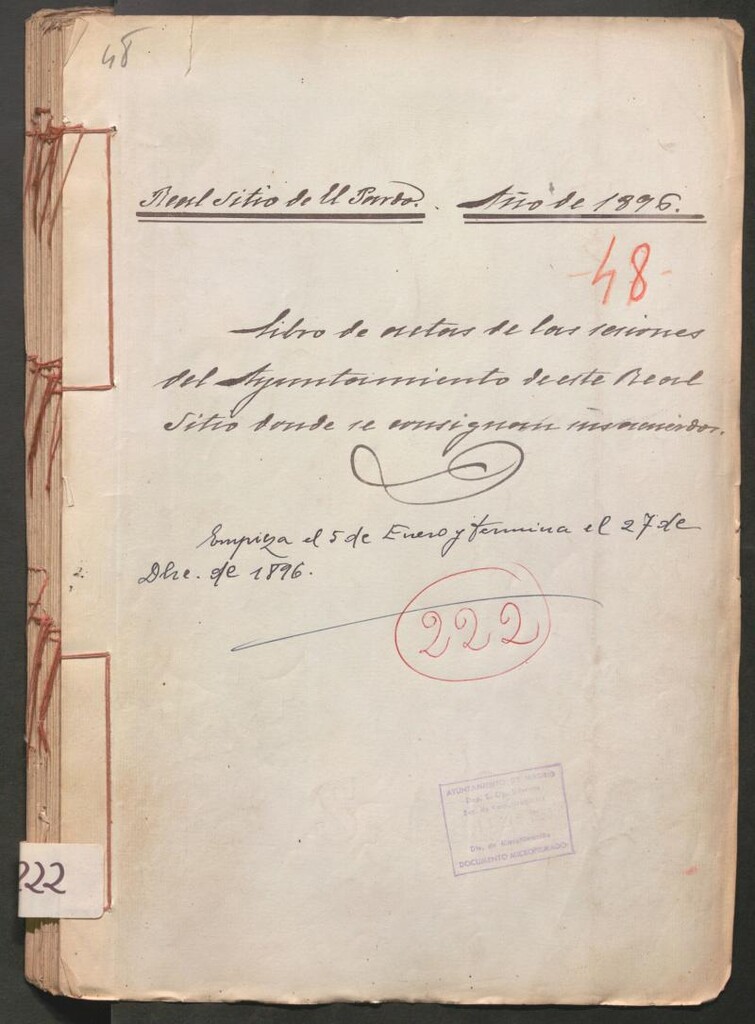 48
Real Sitio de El Pardo. . Año de 1896.
-48-
Libro de actas de las sesiones
del Ayuntamiento de este Real
Sitio donde se consignan sus acuerdos.
Empieza el 5 de Enero y termina el 27 de
Dbre. de 1896.
222
AYUNTAMIENTO DE MADRID
DOCUMENTO MICROFILMADO
222